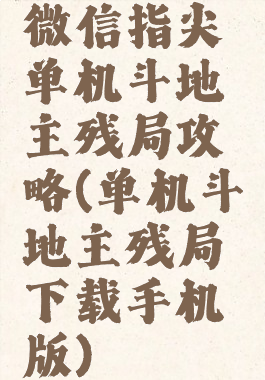 微信指尖
单机斗地
主残局攻
略(单机斗
地主残局
下载手机
版)